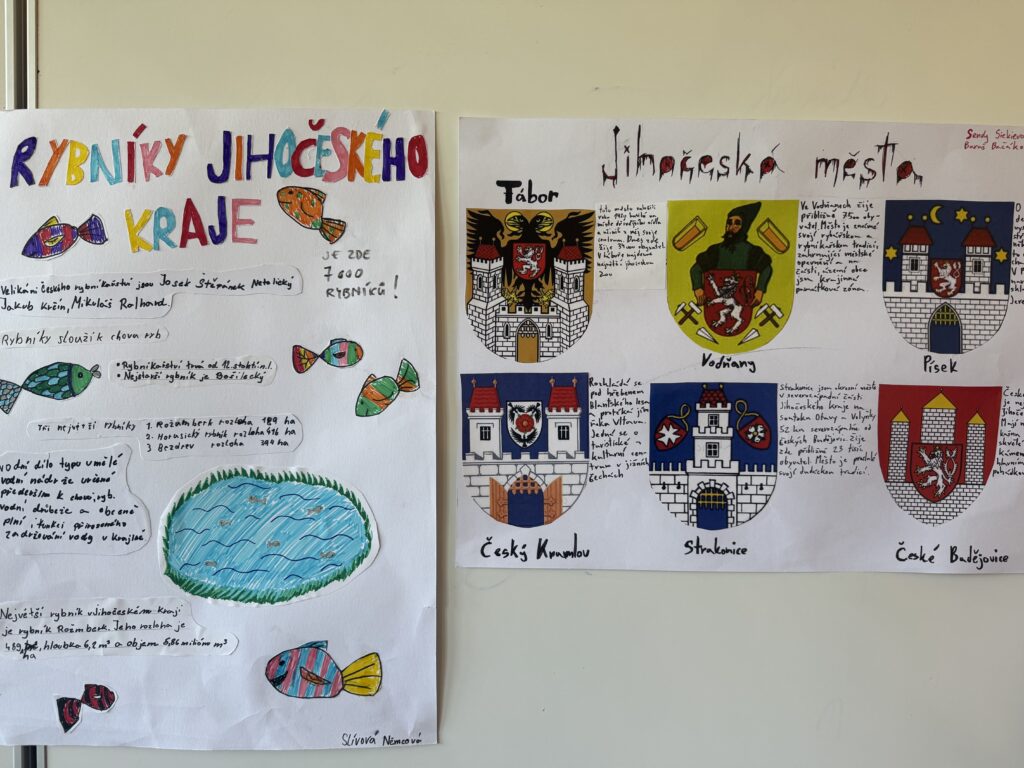 RYBNÍKY JIHOČESKÉHO
KRAJE
JE ZDE
7000
RYBNÍKŮ!
Velikáni českého rybníkářství jsou Josef Štěpánek Netolický
Jakub Krčín, Mikuláš
Rybníky slouží k chovu ryb
• Rybníkářství trvá od 12. století n.l.
• Nejstarší rybník je Bošilecký
Tři největší rybníky
1. Rožamberk rozloha 489 ha
2. Horusický rybník rozloha 416 ha
3 Bezdrev rozloha 394 ha
vodní dílo typu umělé
vodní nádrže určené
především k chovu ryb.
vodní drůbeže a obecně
plní i funkci přirozeného
zadržování vody v krajině
Největší rybník v Jihočeském kraji
je rybník Rožmberk. Jeho rozloha je
489, hloubka 6,2 m² a objem 5,86 miliónu m³
ha
Slívová Němcová
Sendy
Jihočeská města
Tábor
toto město založili
roku 1420 husité na
Ve Vodňanech žije
přibližně 7500 oby-
vatel. Město je známé
svojí rybářskou a
rybníkářskou tradicí
zahrnující městské
části, území obce
jsou krajinná
památková zóna.
Vodňany
Písek
Rozkládá se
pod hřebenem
Blanského lesa
a protéká jím
řeka Vltava.
Jedná se o
turistické a
kulturní cen-
trum v jižních
Čechách
Český Krumlov
Strakonice jsou okresní město
v severozápadní části
Jihočeského kraje na
soutoku Otavy a Volyňky
52 km severozápadně od
Českých Budějovic. Žije
zde přibližně 23 tisíc
obyvatel Město je proslulé
svojí dudáckou tradicí.
Strakonice
České Budějovice